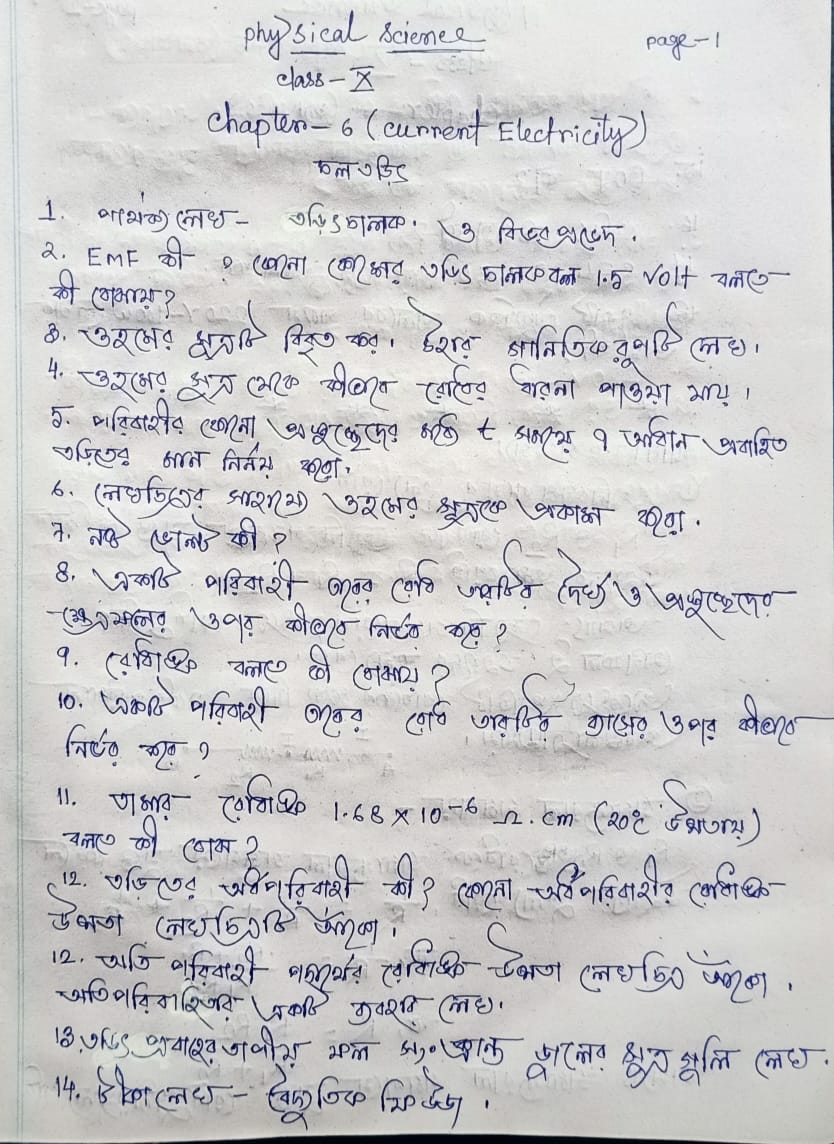 physical science
page-1
class-X
Chapter-6 (current Electricity)
চল তড়িৎ
1. পার্থক্য লেখ- তড়িৎচালক. ও বিভবপ্রভেদ.
২. EMF কী ? কোনো কোষের তড়িৎ চালক বল 1.5 volt বলতে
কী বোঝায়?
৩. ওহমের সূত্রটি বিবৃত কর। উহার গানিতিক রূপটি লেখ।
4. ওহমের সূত্র থেকে কীভাবে রোধের ধারনা পাওয়া যায়।
5. পরিবাহীর কোনো প্রস্থচ্ছেদের মধ্যে t সময়ে q আধান প্রবাহিত
তড়িতের মান নির্নয় করো.
6. লেখচিত্রের সাহায্যে ওহমের সূত্রকে প্রকাশ করো.
7. নষ্ট ভোল্ট কী ?
8. একটি পরিবাহী তারের রোধ তারটির দৈর্ঘ্য ও প্রস্থচ্ছেদের
ক্ষেত্রফলের ওপর কীভাবে নির্ভর করে ?
9. রোধাঙ্ক বলতে কী বোঝায় ?
10. একটি পরিবাহী তারের রোধ তারটির ব্যাসের ওপর কীভাবে
নির্ভর করে ?
11. তামার রোধাঙ্ক 1.68 × 10⁻⁶ Ω. cm (20°C উষ্ণতায়)
বলতে কী বোঝ ?
12. তড়িতের অর্ধপরিবাহী কী? কোনো অর্ধপরিবাহীর রোধাঙ্ক
উষ্ণতা লেখচিত্রটি আঁকো।
12. অতি পরিবাহী পদার্থের রোধাঙ্ক উষ্ণতা লেখচিত্র আঁকো.
অতিপরিবাহিতার একটি ব্যবহার লেখ.
13. তড়িৎ প্রবাহের তাপীয় ফল সংক্রান্ত জুলের সূত্র গুলি লেখ.
14. টীকা লেখ - বৈদ্যুতিক ফিউজ.